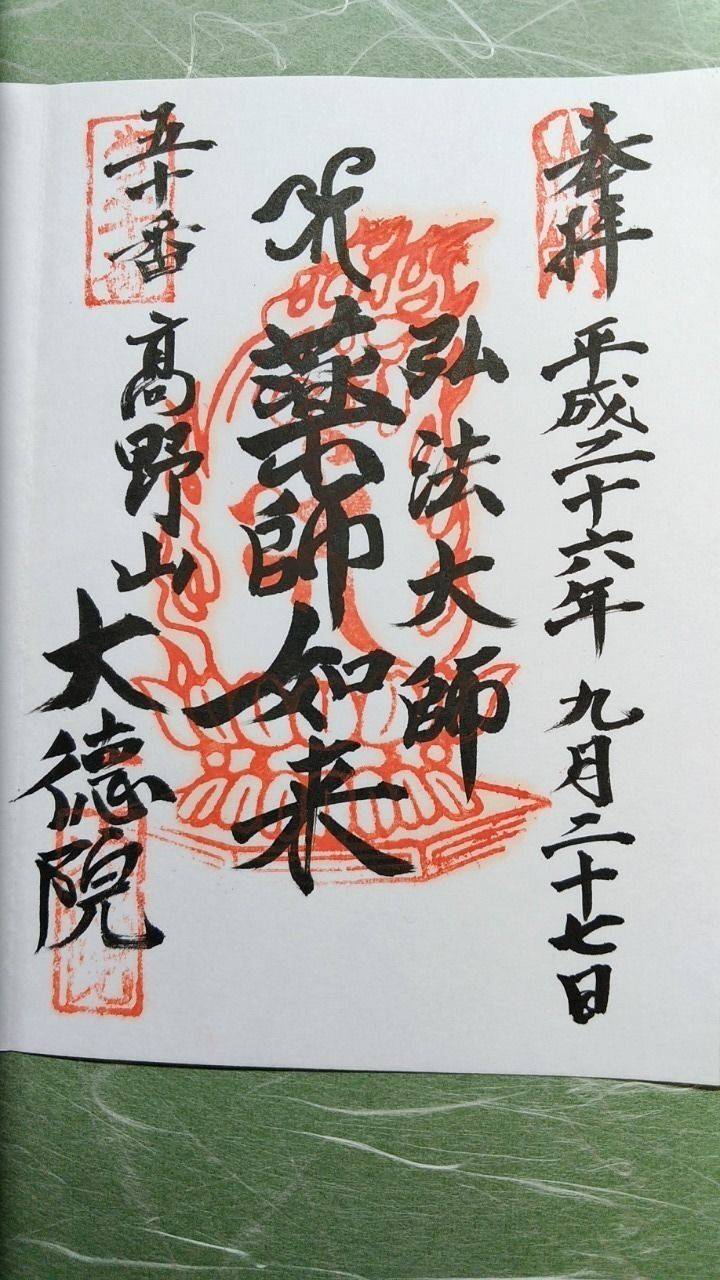 奉拝 平成二十六年 九月二十七日
弘法大師
薬師如来
五十番 高野山 大徳院